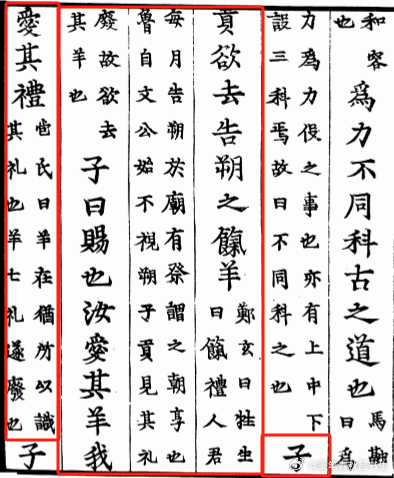 和容
也
為力不同科古之道也
馬融
曰為
力為力役之事也亦有上中下
設三科焉故曰不同科之也
子
貢欲去告朔之餼羊
鄭玄曰牲生
曰餼禮人君
每月告朔於廟有祭謂之朝享也
魯自文公始不視朔子貢見其礼
廢故欲去
其羊也
子曰賜也汝愛其羊我
愛其禮
苞氏曰羊在猶所以識
其礼也羊亡礼遂廢也
子